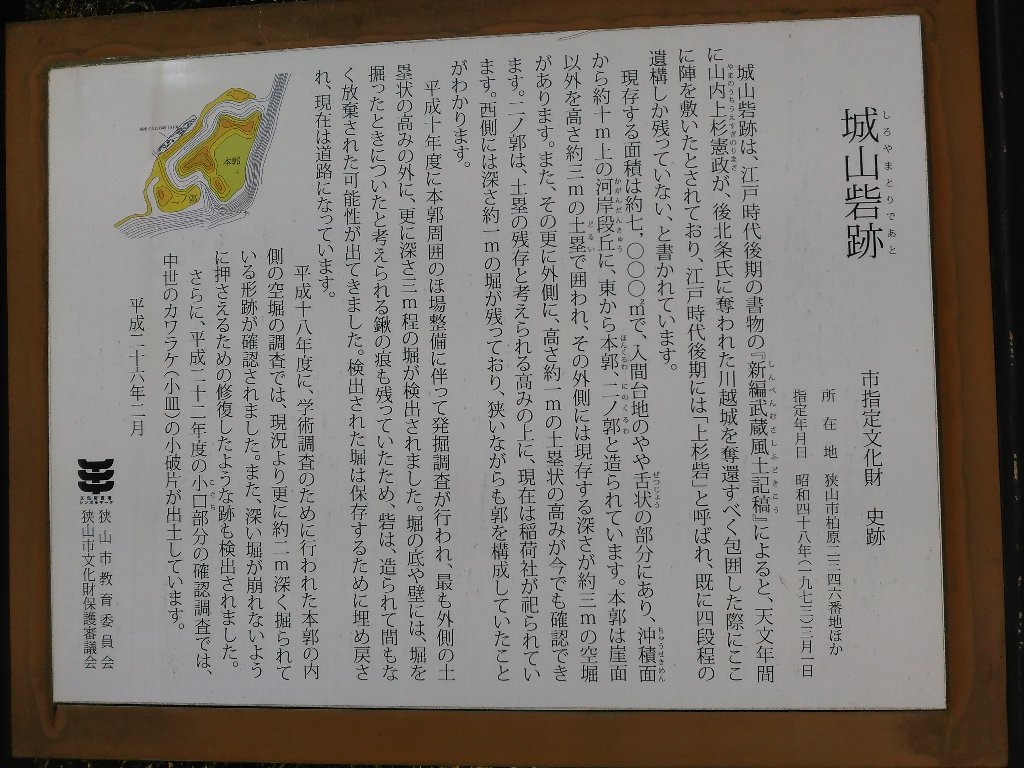 城山砦跡
しろやまとりであと
市指定文化財　史跡
所在地　狭山市柏原二三四六番地ほか
指定年月日　昭和四十八年(一九七三)三月一日
城山砦跡は、江戸時代後期の書物の『新編武蔵風土記稿』によると、天文年間
しんぺんむさしふどきこう
に山内上杉憲政が、後北条氏に奪われた川越城を奪還すべく包囲した際にここ
やまのうちうえすぎのりまさ
に陣を敷いたとされており、江戸時代後期には「上杉砦」と呼ばれ、既に四段程の
遺構しか残っていない、と書かれています。
現存する面積は約七,〇〇〇㎡で、入間台地のやや舌状の部分にあり、沖積面
ぜつじょう
ちゅうせきめん
から約十m上の河岸段丘に、東から本郭、二ノ郭と造られています。本郭は崖面
かがんだんきゅう
ほんくるわ
にのくるわ
以外を高さ約三mの土塁で囲われ、その外側には現存する深さが約三mの空堀
どるい
があります。また、その更に外側に、高さ約一mの土塁状の高みが今でも確認でき
ます。二ノ郭は、土塁の残存と考えられる高みの上に、現在は稲荷社が祀られてい
ます。西側には深さ約一mの堀が残っており、狭いながらも郭を構成していたこと
がわかります。
平成十年度に本郭周囲のほ場整備に伴って発掘調査が行われ、最も外側の土
塁状の高みの外に、更に深さ三m程の堀が検出されました。堀の底や壁には、堀を
掘ったときについたと考えられる鍬の痕も残っていたため、砦は、造られて間もな
く放棄された可能性が出てきました。検出された堀は保存するために埋め戻さ
れ、現在は道路になっています。
平成十八年度に、学術調査のために行われた本郭の内
側の空堀の調査では、現況より更に約二m深く掘られて
いる形跡が確認されました。また、深い堀が崩れないよう
に押さえるための修復したような跡も検出されました。
さらに、平成二十二年度の小口部分の確認調査では、
こぐち
中世のカワラケ(小皿)の小破片が出土しています。
平成二十六年二月
狭山市教育委員会
狭山市文化財保護審議会
本郭
二ノ郭
文化財愛護
シンボルマーク